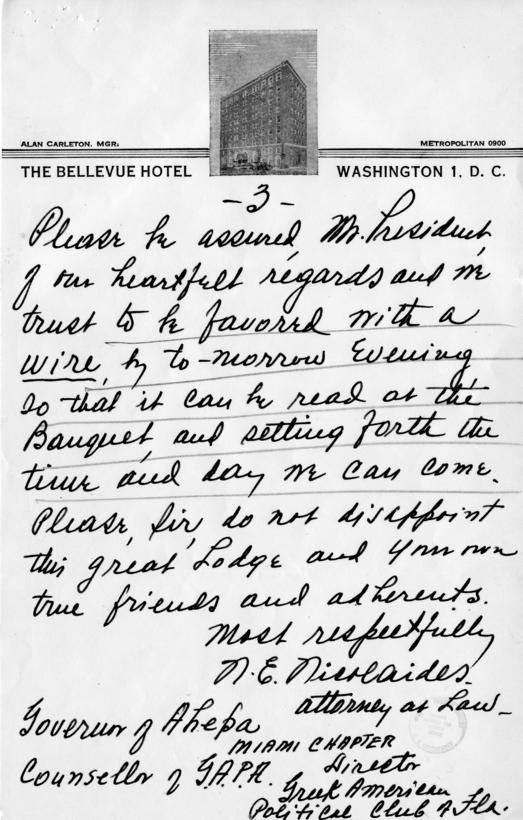 ALAN CARLETON, MGR.
METROPOLITAN 0900
THE BELLEVUE HOTEL
WASHINGTON 1, D. C.
-3-
Please be assured, Mr. President,
of our heartfelt regards and we
trust to be favored with a
wire, by to-morrow Evening
so that it can be read at the
Banquet, and setting forth the
time and day we can come.
Please, Sir, do not disappoint
this great Lodge and your own
true friends and adherents.
Most respectfully
N. E. Nicolaides.
attorney at Law-
Governor of Ahepa
MIAMI CHAPTER
Counsellor of G.A.P.A.
Director
Greek American
Political Club of Fla.